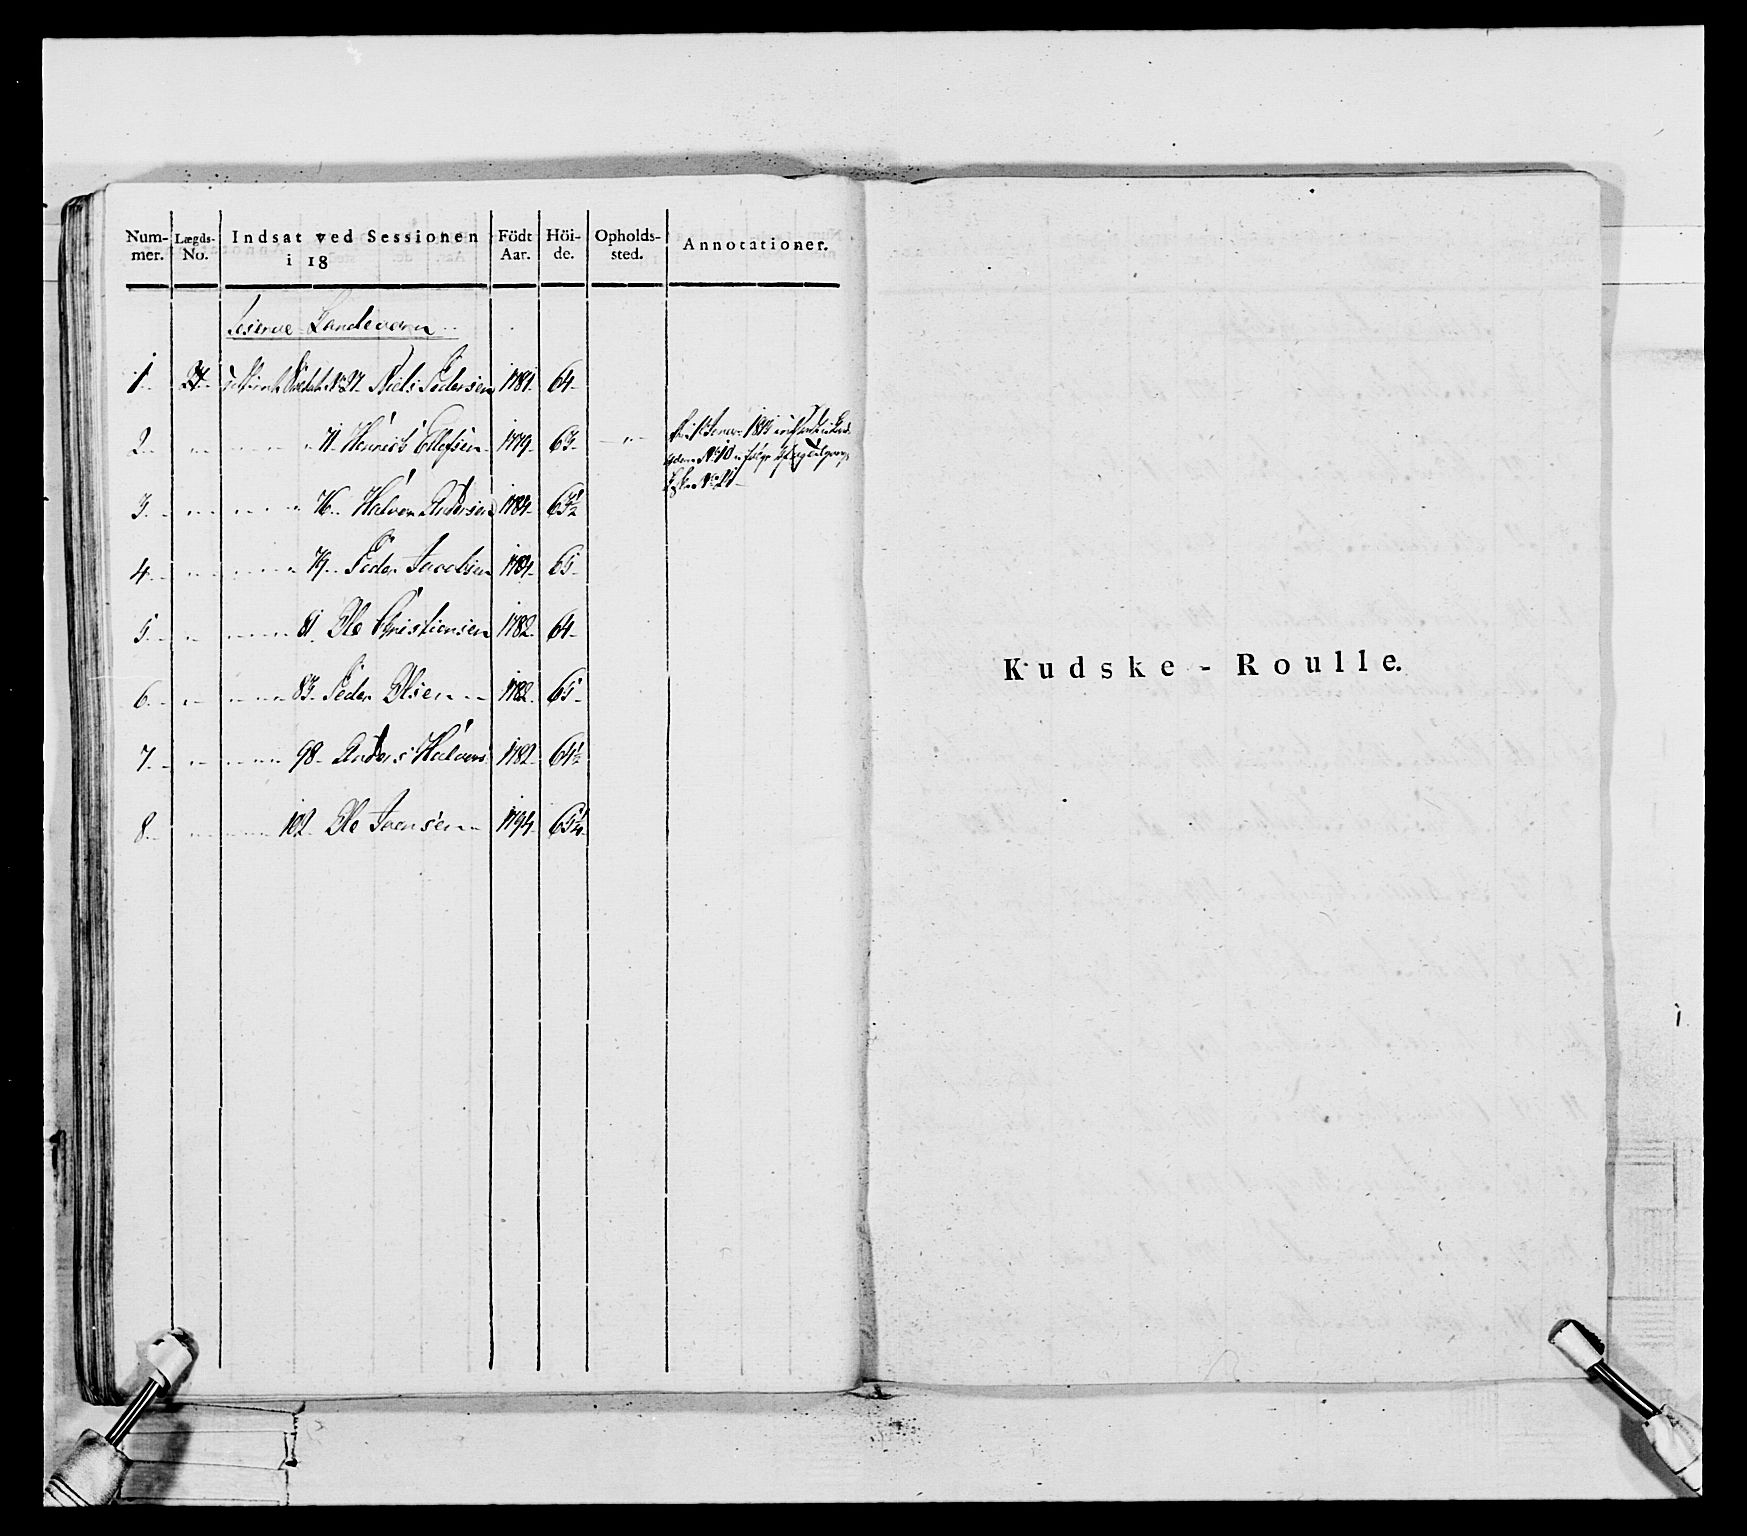 Num-mer. Lægds-No. Indsat ved Sessionen i 18 Födt Aar. Höi-de. Opholds-sted. Annotationer.
Reserve Landeværn
1 24 No 27. Niels Pedersen 1781. 64
2 71. Henrich Ellefsen 1779. 63
No 10
3 76 Halvor Andersen 1784 63½
4 79. Peder Jacobsen 1784 65
5 81 Ole Christiansen 1782 64
6 83. Peder Olsen 1782 65
7 98 Anders Halvors 1782 64½
8 102 Ole Joensen 1794 65¼
Kudske-Roulle.